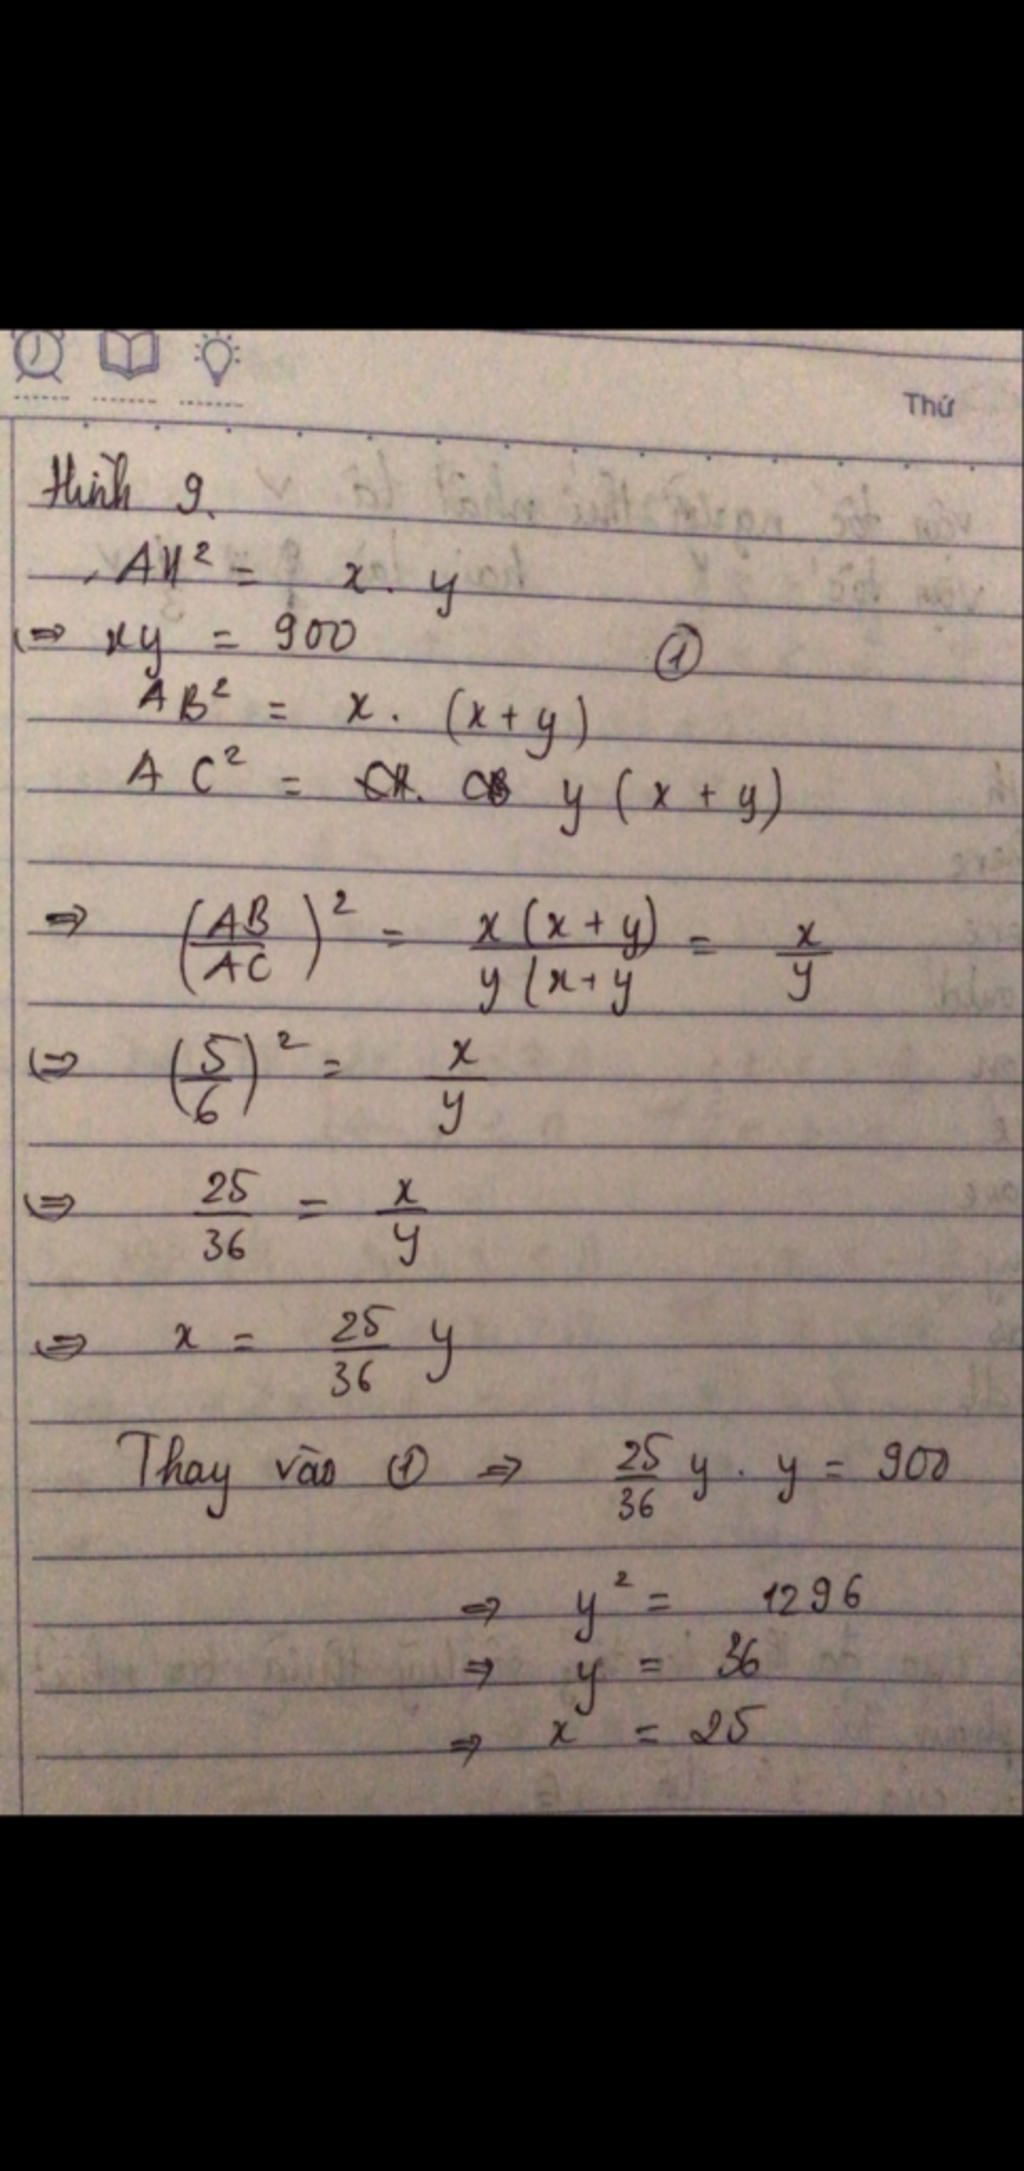 Thứ
Hình 9.
AH² = x . y
⇔ xy = 900 ①
AB² = x . (x + y)
AC² = y (x + y)
⇒ (AB/AC)² = x (x + y) / y (x + y = x/y
⇔ (5/6)² = x/y
⇔ 25/36 = x/y
⇔ x = 25/36 y
Thay vào ① ⇒ 25/36 y . y = 900
⇒ y² = 1296
⇒ y = 36
⇒ x = 25